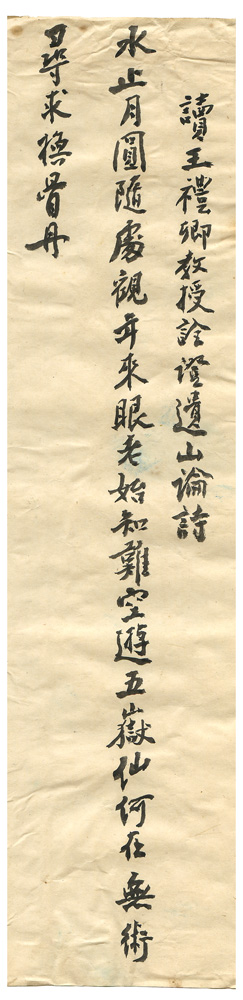 讀王禮卿教授詮證遺山論詩
水止月圓隨處觀年來眼老始知難空遊五嶽仙何在無術
尋求換骨丹